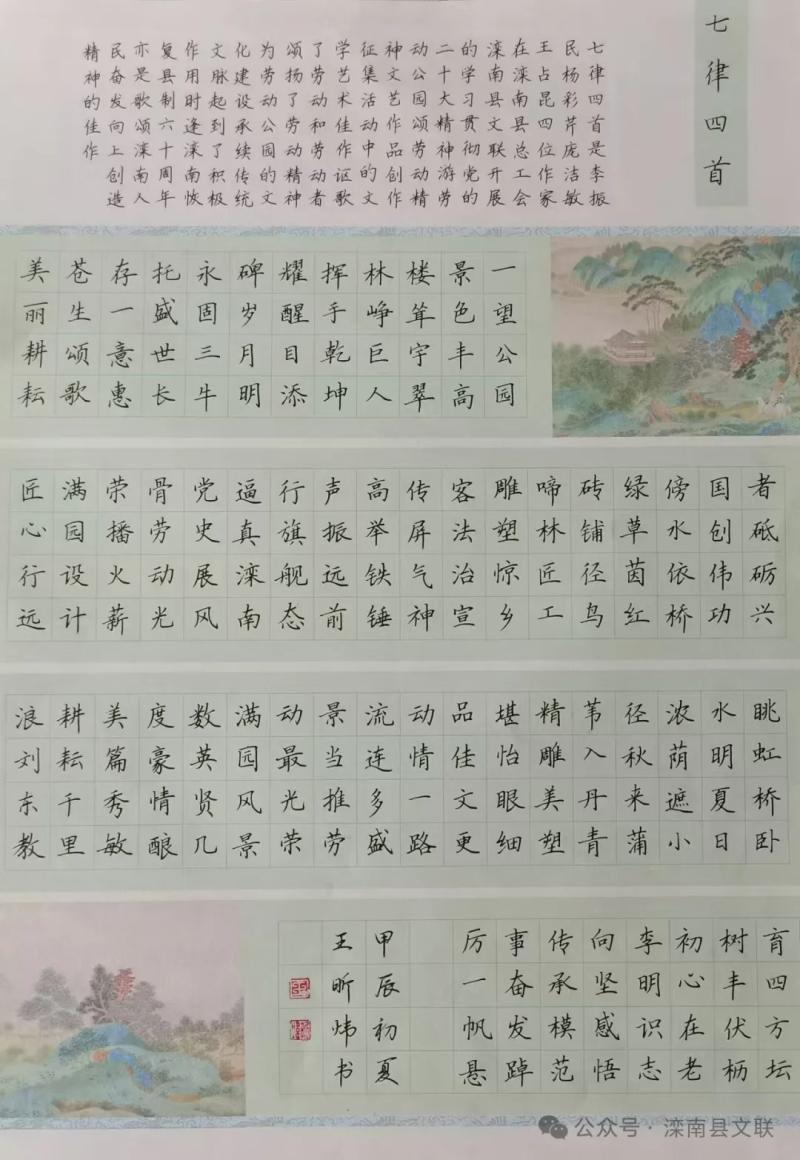 七律四首
七律四首是李振
民杨彩芹庞洁敏
王占昆四位作家
在滦南县总工会
滦南县文联开展
的学习贯彻党的
二十大精神游劳
动公园颂劳动精
神文艺作品创作
征集活动中的文
学艺术佳作讴歌
了劳动和劳动者
颂扬了劳动精神
为劳动公园的文
化建设承续传统
文脉起到了积极
作用时逢滦南恢
复县制六十周年
亦是歌颂滦南人
民奋发向上创造
精神的佳作
一望公园
景色丰高
楼耸宇翠
林峥巨人
挥手乾坤
耀醒目添
碑岁月明
永固三牛
托盛世长
存一意惠
苍生颂歌
美丽耕耘
者砥砺兴
国创伟功
傍水依桥
绿草茵红
砖铺径鸟
啼林匠工
雕塑惊乡
客法治宣
传屏气神
高举铁锤
声振远前
行旗舰态
逼真滦南
党史展风
骨劳动光
荣播火薪
满园设计
匠心行远
眺虹桥卧
水明夏日
浓荫遮小
径秋来蒲
苇入丹青
精雕美塑
堪怡眼细
品佳文更
动情一路
流连多盛
景当推劳
动最光荣
满园风景
数英贤几
度豪情酿
美篇秀敏
耕耘千里
浪刘东教
育四方坛
树丰伏枥
初心在老
李明识志
向坚感悟
传承模范
事奋发踔
厉一帆悬
甲辰初夏
王昕炜书
公众号·滦南县文联